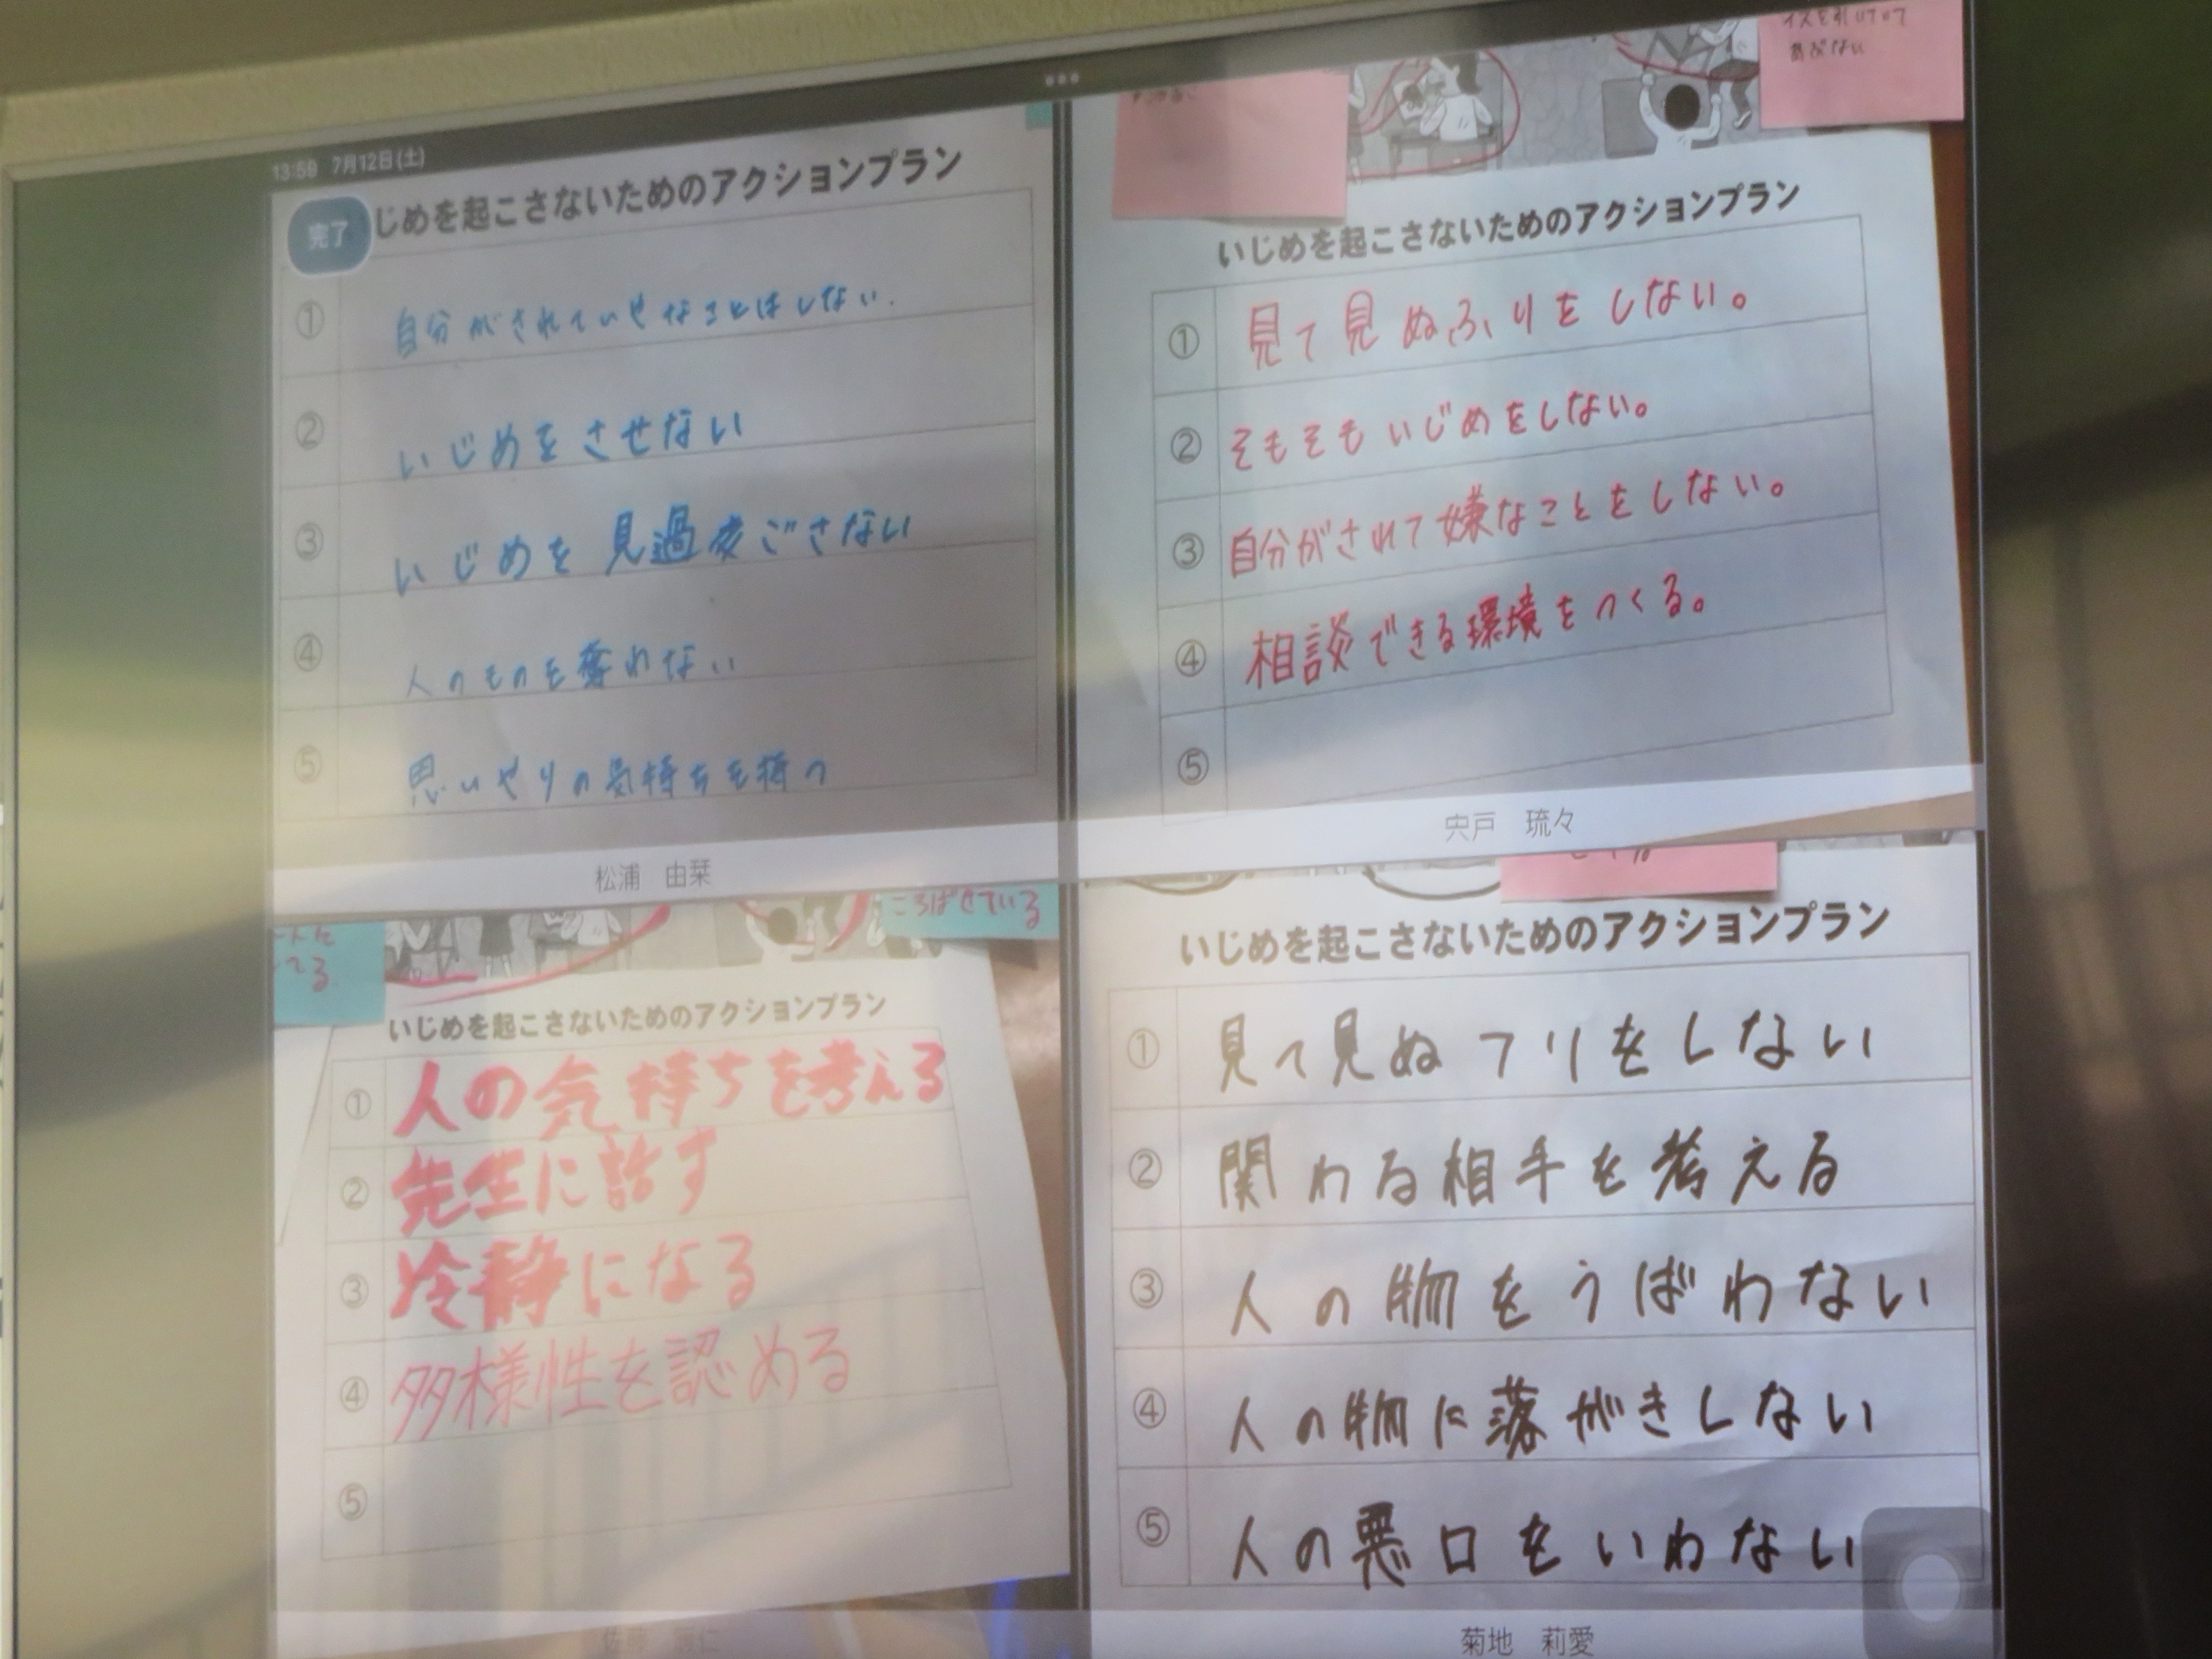 13:59 7月12日(土)
完了
じめを起こさないためのアクションプラン
① 自分がされていやなことはしない.
② いじめをさせない
③ いじめを見過ごさない
④ 人のものを奪わない
⑤ 思いやりの気持ちを持つ
松浦 由栞
イスを引いてて
あぶない
いじめを起こさないためのアクションプラン
① 見て見ぬふりをしない。
② そもそもいじめをしない。
③ 自分がされて嫌なことをしない。
④ 相談できる環境をつくる。
⑤
宍戸 琉々
ころばせている
てる.
いじめを起こさないためのアクションプラン
① 人の気持ちを考える
② 先生に話す
③ 冷静になる
④ 多様性を認める
⑤
いじめを起こさないためのアクションプラン
① 見て見ぬフリをしない
② 関わる相手を考える
③ 人の物をうばわない
④ 人の物に落がきしない
⑤ 人の悪口をいわない
菊地 莉愛